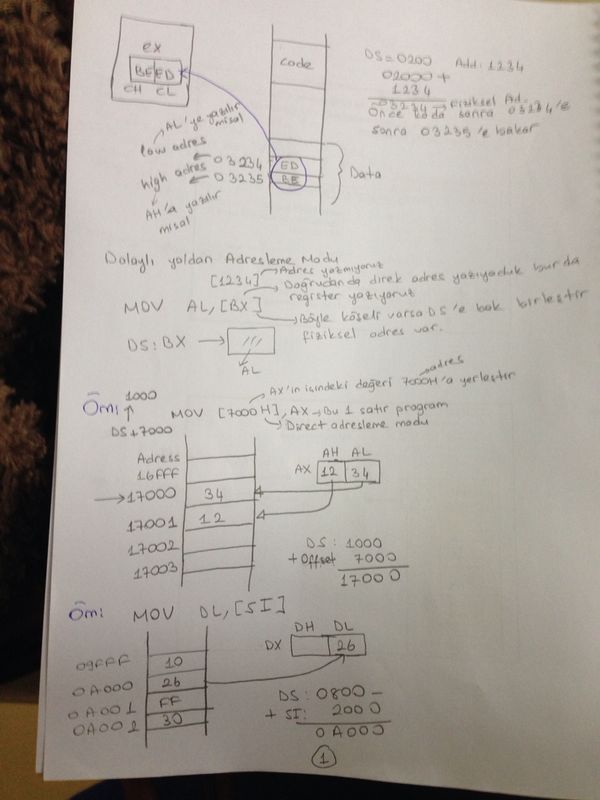 ex
BE ED
CH CL
code
DS=0200 Add: 1234
02000 +
1234
03234 → Fiziksel Ad.
Önce koda sonra 03234'e
sonra 03235'e bakar
AL'ye yazılır
misal
low adres
high adres
03234 ED
03235 BE
Data
AH'a yazılır
misal
Dolaylı yoldan Adresleme Modu
[1234] Adres yazmıyoruz
Doğrudan da direk adres yazıyoduk burda
register yazıyoruz
MOV AL,[BX]
Böyle köşeli varsa DS'e bak birleştir
fiziksel adres var.
DS:BX →
AL
1000
DS+7000
Örn:
adres
AX'in içindeki değeri 7000H'a yerleştir
MOV [7000H], AX → Bu 1 satır program
Direct adresleme modu
Adress
16FFF
→ 17000 34
17001 12
17002
17003
AH AL
AX 12 34
DS: 1000
+ Offset 7000
17000
Örn: MOV DL,[SI]
DH DL
DX 26
09FFF 10
0A000 26
0A001 FF
0A002 30
DS: 0800 _
+ SI: 2000
0A000
1